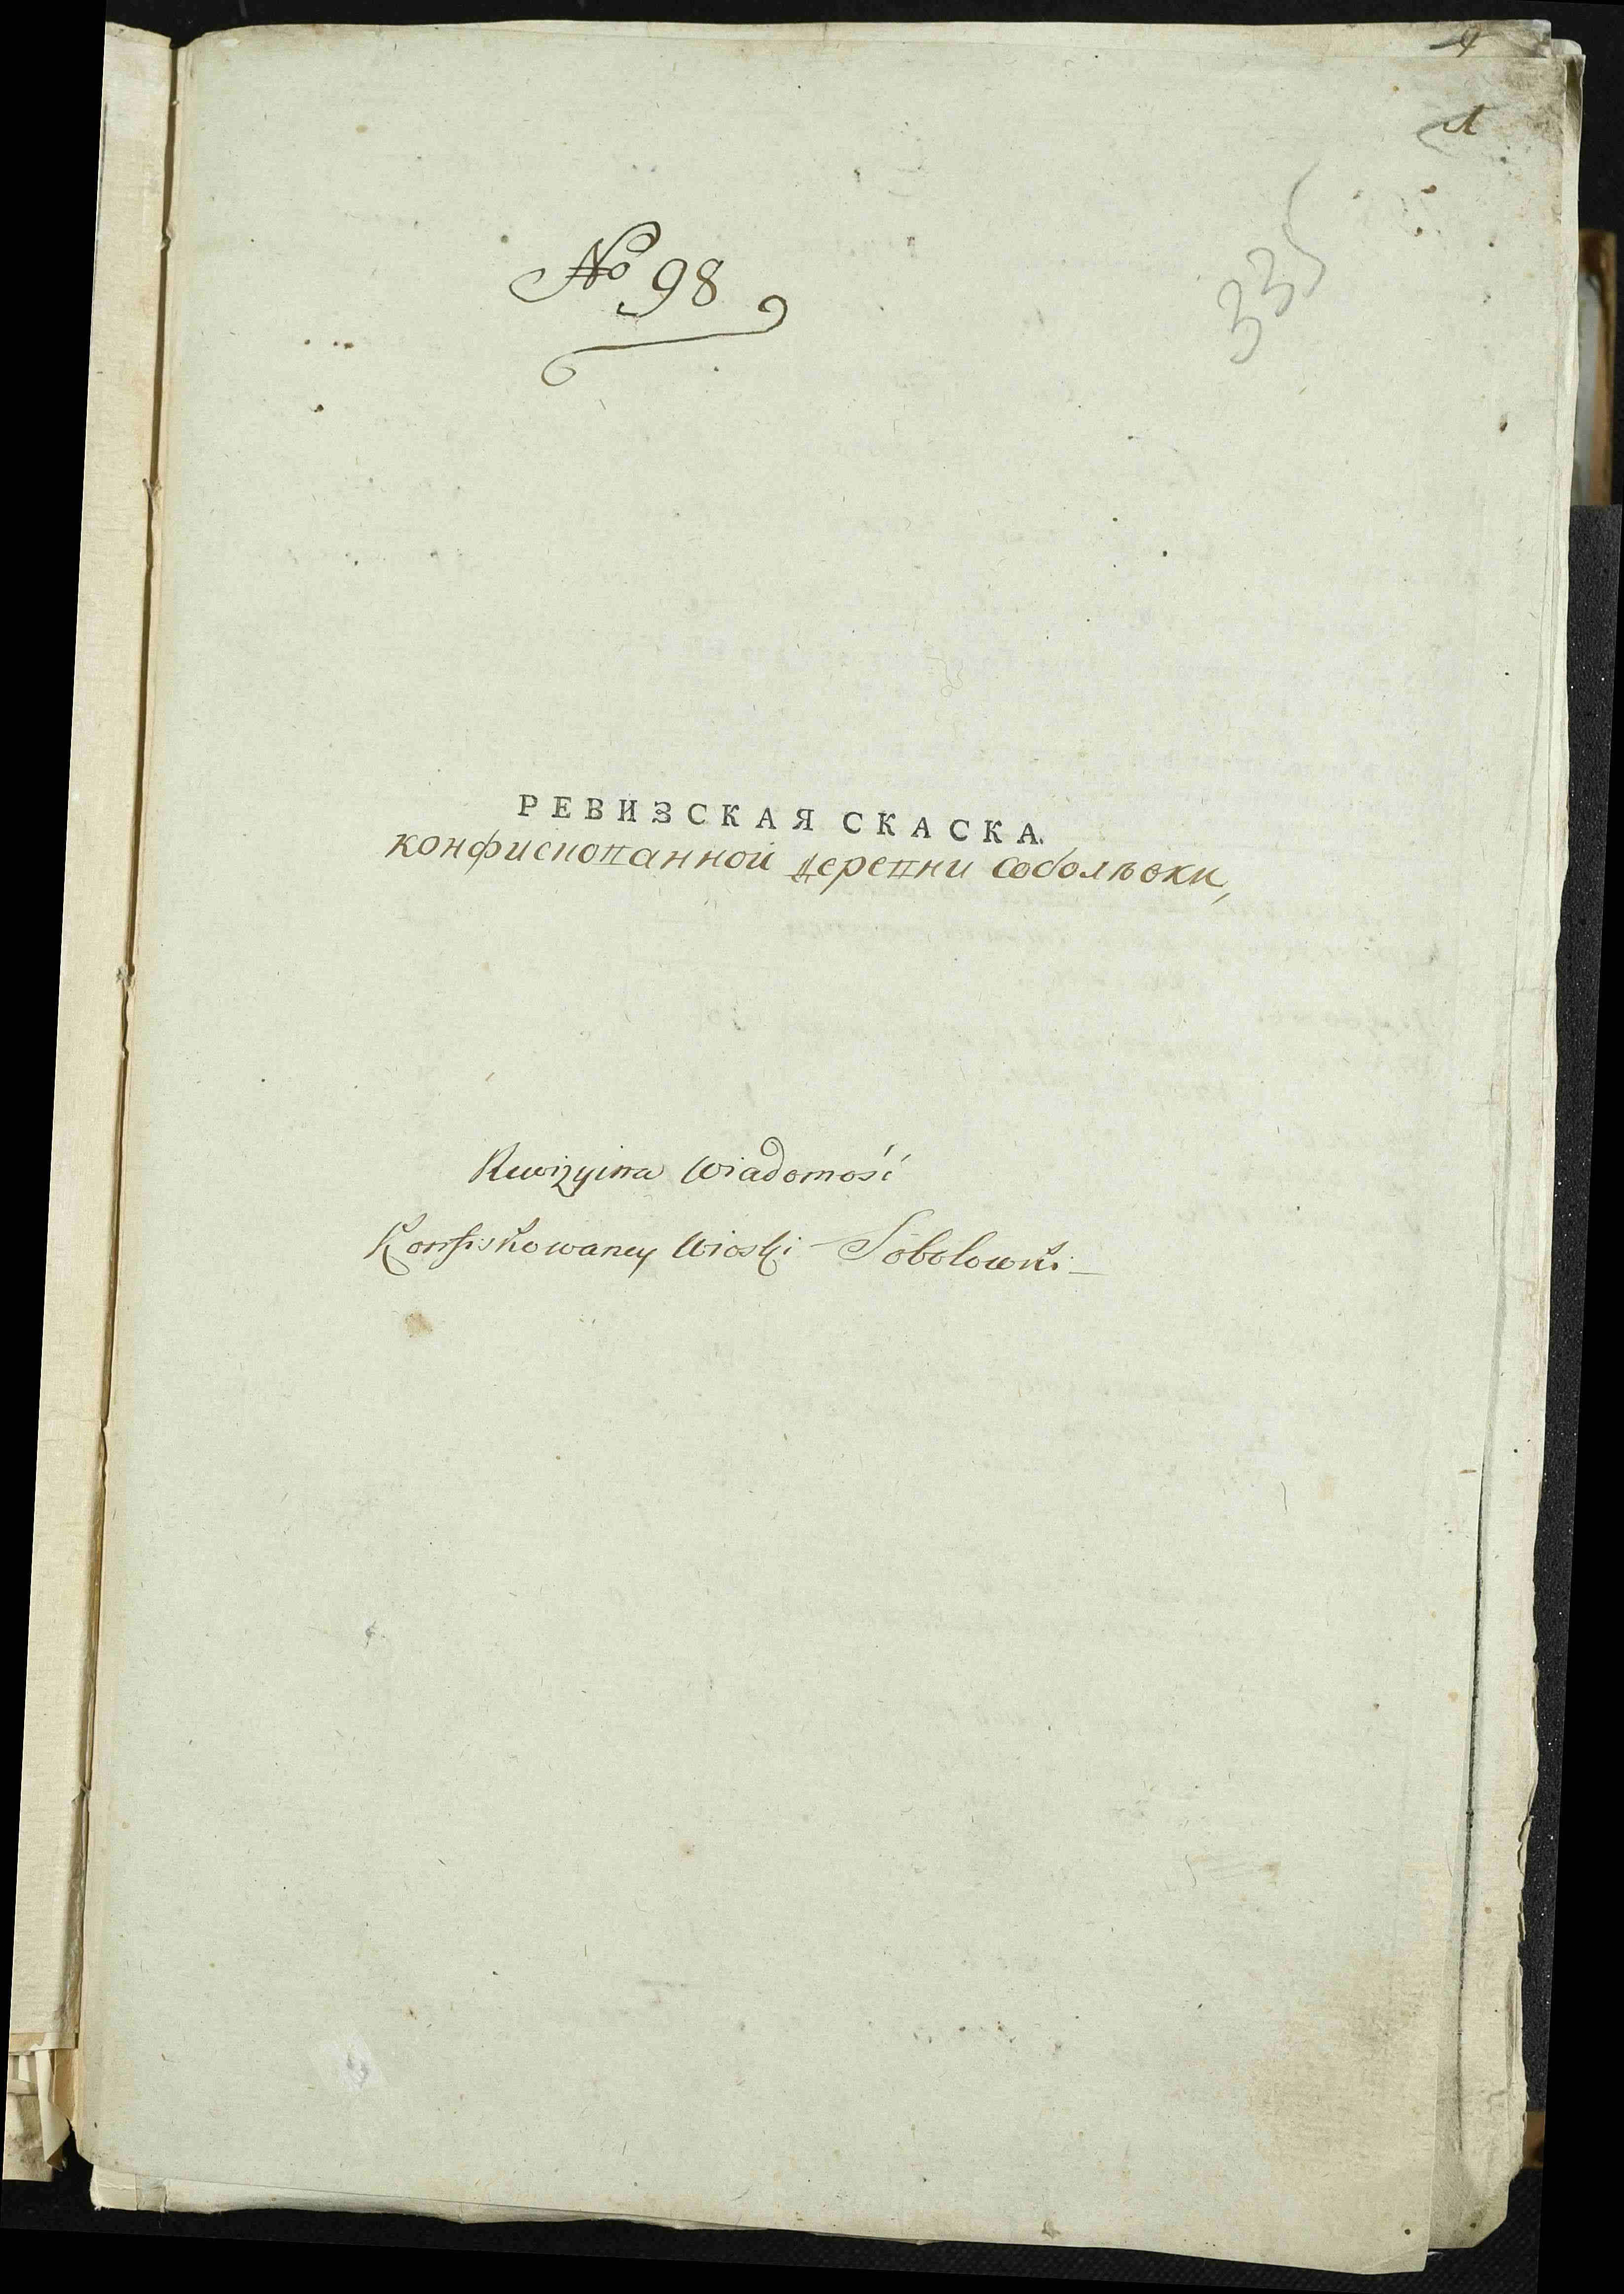 1
№ 98
335
РЕВИЗСКАЯ СКАСКА.
конфискованной деревни соболѣвки,
Rewizyina Wiadomość
Konfiskowaney Wioski Sobolowki